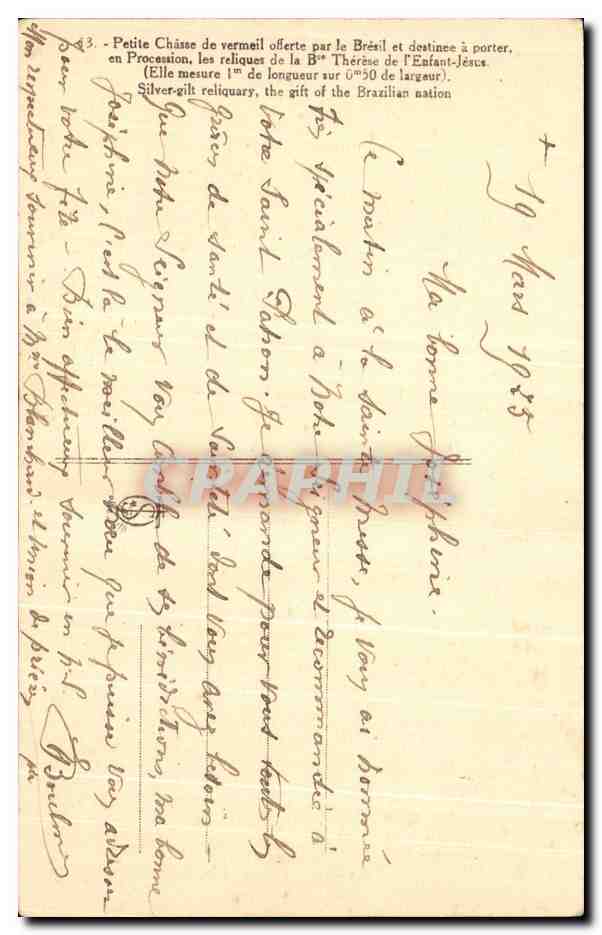 53. - Petite Châsse de vermeil offerte par le Brésil et destinee à porter,
en Procession, les reliques de la Bse Thérèse de l'Enfant-Jésus.
(Elle mesure 1m de longueur sur 0m50 de largeur).
Silver-gilt reliquary, the gift of the Brazilian nation
+ 19 Mars 1925
Ma bonne Joséphine.
Ce matin à la Sainte Messe, je vous ai nommée
très spécialement à Notre Seigneur et recommandée à
votre Saint Patron. Je demande pour vous toutes les
grâces de santé et de Sainteté dont vous avez besoin -
Que Notre Seigneur vous comble de ses bénédictions, ma bonne
Joséphine, c'est là le meilleur voeu que je puisse vous adresser
pour votre fête - Bien affectueux souvenir en N.S.
Mon respectueux souvenir à Mme Blanchard et union de prières
CPAPHIL